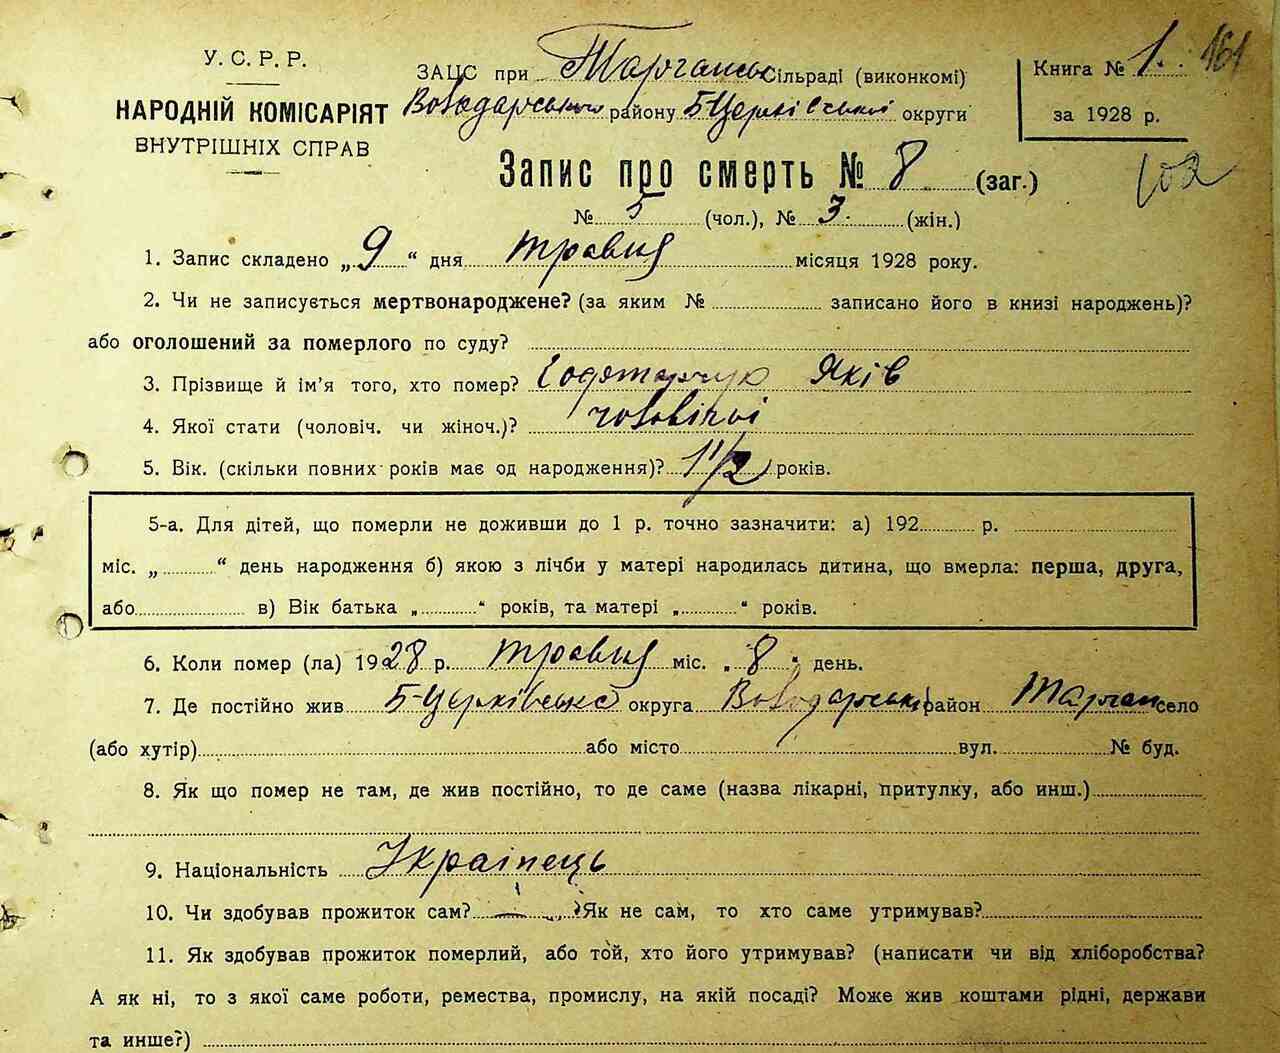 У. С. Р. Р.
НАРОДНІЙ КОМІСАРІЯТ
ВНУТРІШНІХ СПРАВ
ЗАЦС при Тарганськ Сільраді (виконкомі)
Володарського району Б-Церківської округи
Книга № 1. 161
за 1928 р.
Запис про смерть № 8 (заг.)
№ 5 (чол.), № 3. (жін.)
1. Запис складено „ 9 “ дня травня місяця 1928 року.
2. Чи не записується мертвонароджене? (за яким № записано його в книзі народжень)?
або оголошений за померлого по суду?
3. Прізвище й ім'я того, хто помер? Яків
4. Якої стати (чоловіч. чи жіноч.)? чоловічої
5. Вік. (скільки повних років має од народження)? 1 1/2 років.
5-а. Для дітей, що померли не доживши до 1 р. точно зазначити: а) 192 р.
міс. „ “ день народження б) якою з лічби у матері народилась дитина, що вмерла: перша, друга,
або в) Вік батька „ “ років, та матері „ “ років.
6. Коли помер (ла) 1928 р. травня міс. „ 8 “ день.
7. Де постійно жив Б-Церківське округа Володарський район Тарган село
(або хутір) або місто вул. № буд.
8. Як що помер не там, де жив постійно, то де саме (назва лікарні, притулку, або инш.)
9. Національність Українець
10. Чи здобував прожиток сам? Як не сам, то хто саме утримував?
11. Як здобував прожиток померлий, або той, хто його утримував? (написати чи від хліборобства?
А як ні, то з якої саме роботи, ремества, промислу, на якій посаді? Може жив коштами рідні, держави
та инше?)